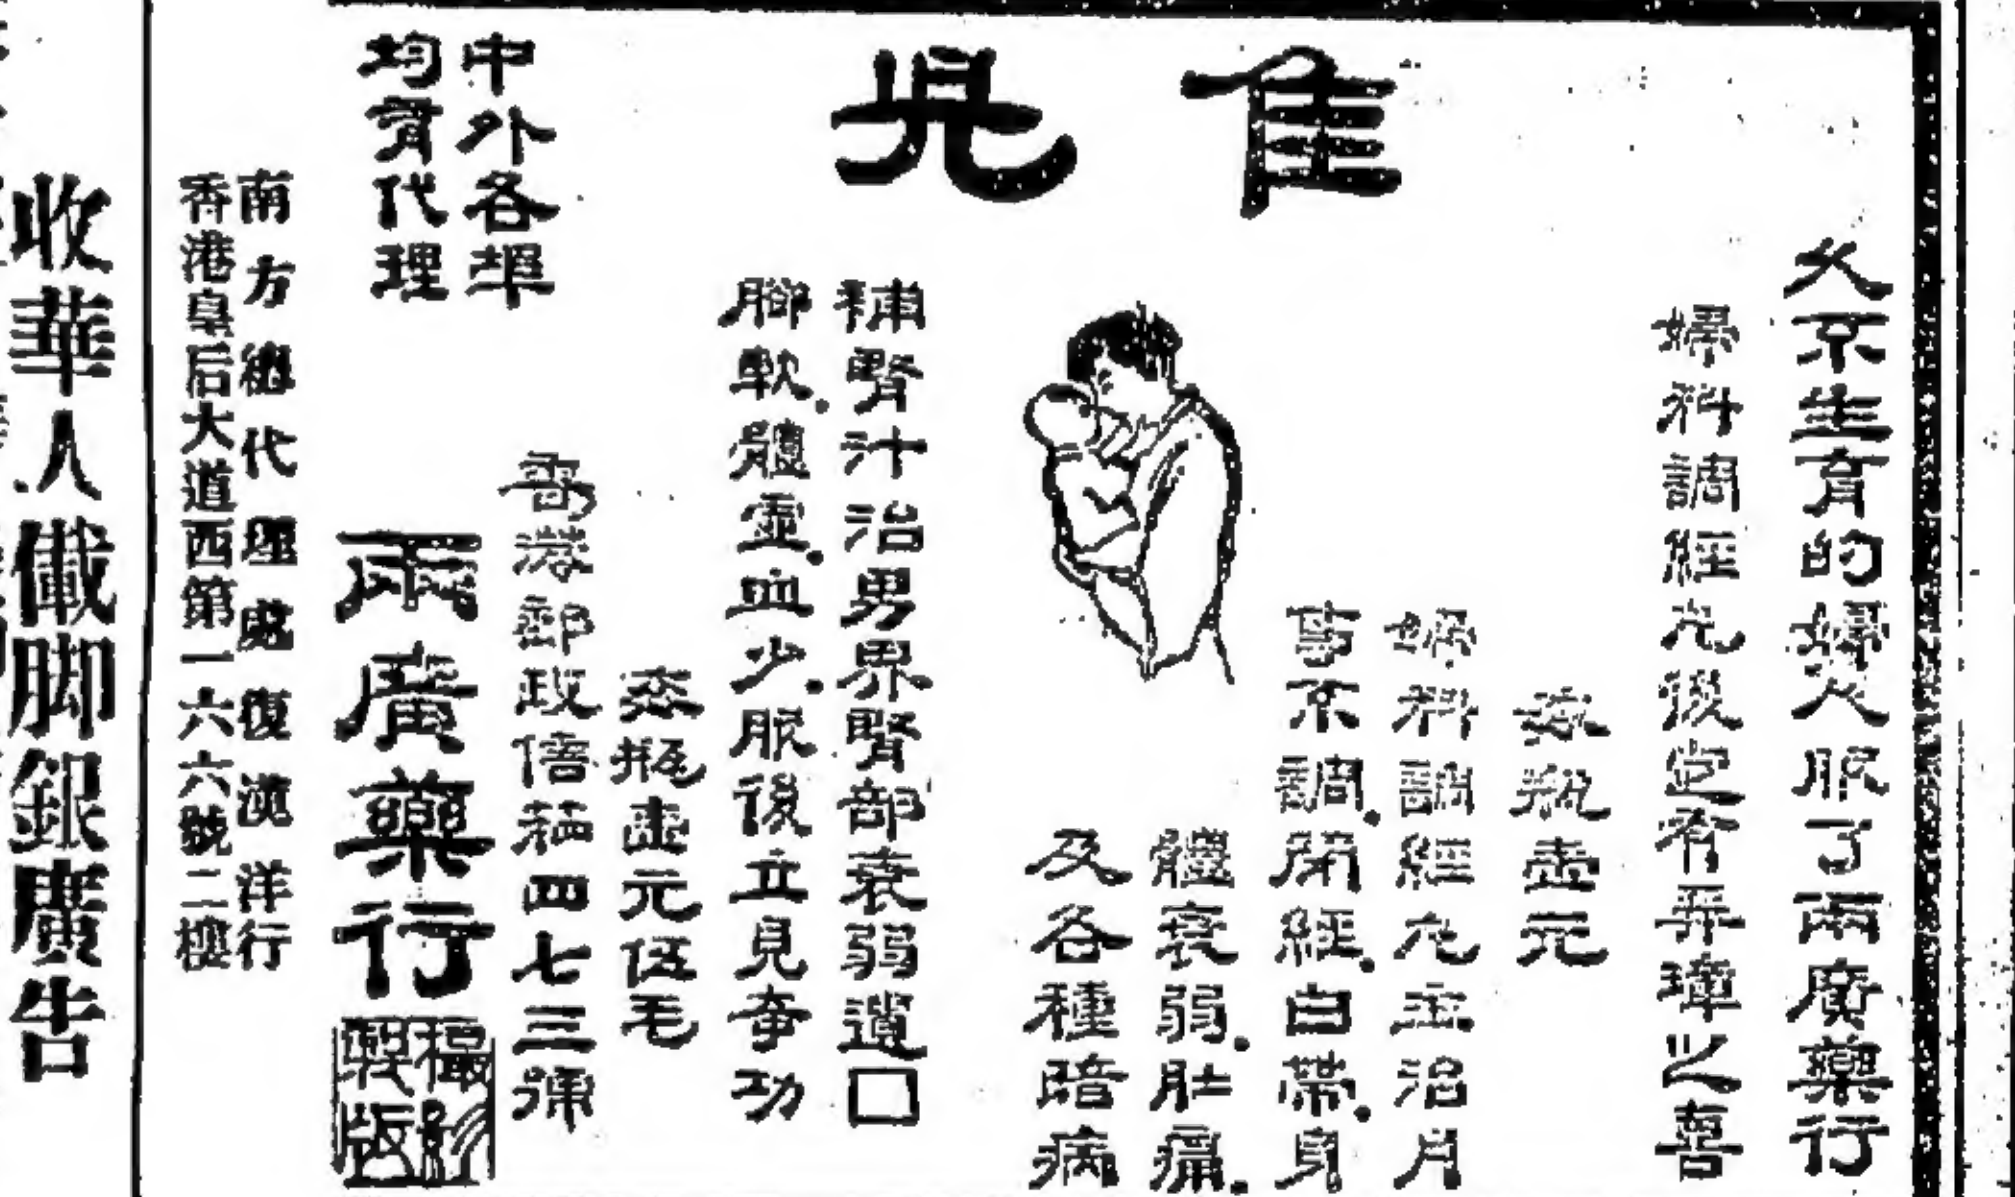 佳兒
久不生育的婦人服了兩廣藥行
婦科調經丸後定有弄璋之喜
每瓶壹元
婦科調經丸主治月
事不調.閉經.白帶.身
體衰弱.肚痛.
及各種暗病
補腎汁治男界腎部衰弱遺□
腳軟.體虛.血少.服後立見奇功
每瓶壹元伍毛
香港郵政信箱四七三號
兩廣藥行
攝影
製版
中外各埠
均有代理
南方總代理處復漢洋行
香港皇后大道西第一六六號二樓
收華人儎脚銀廣告